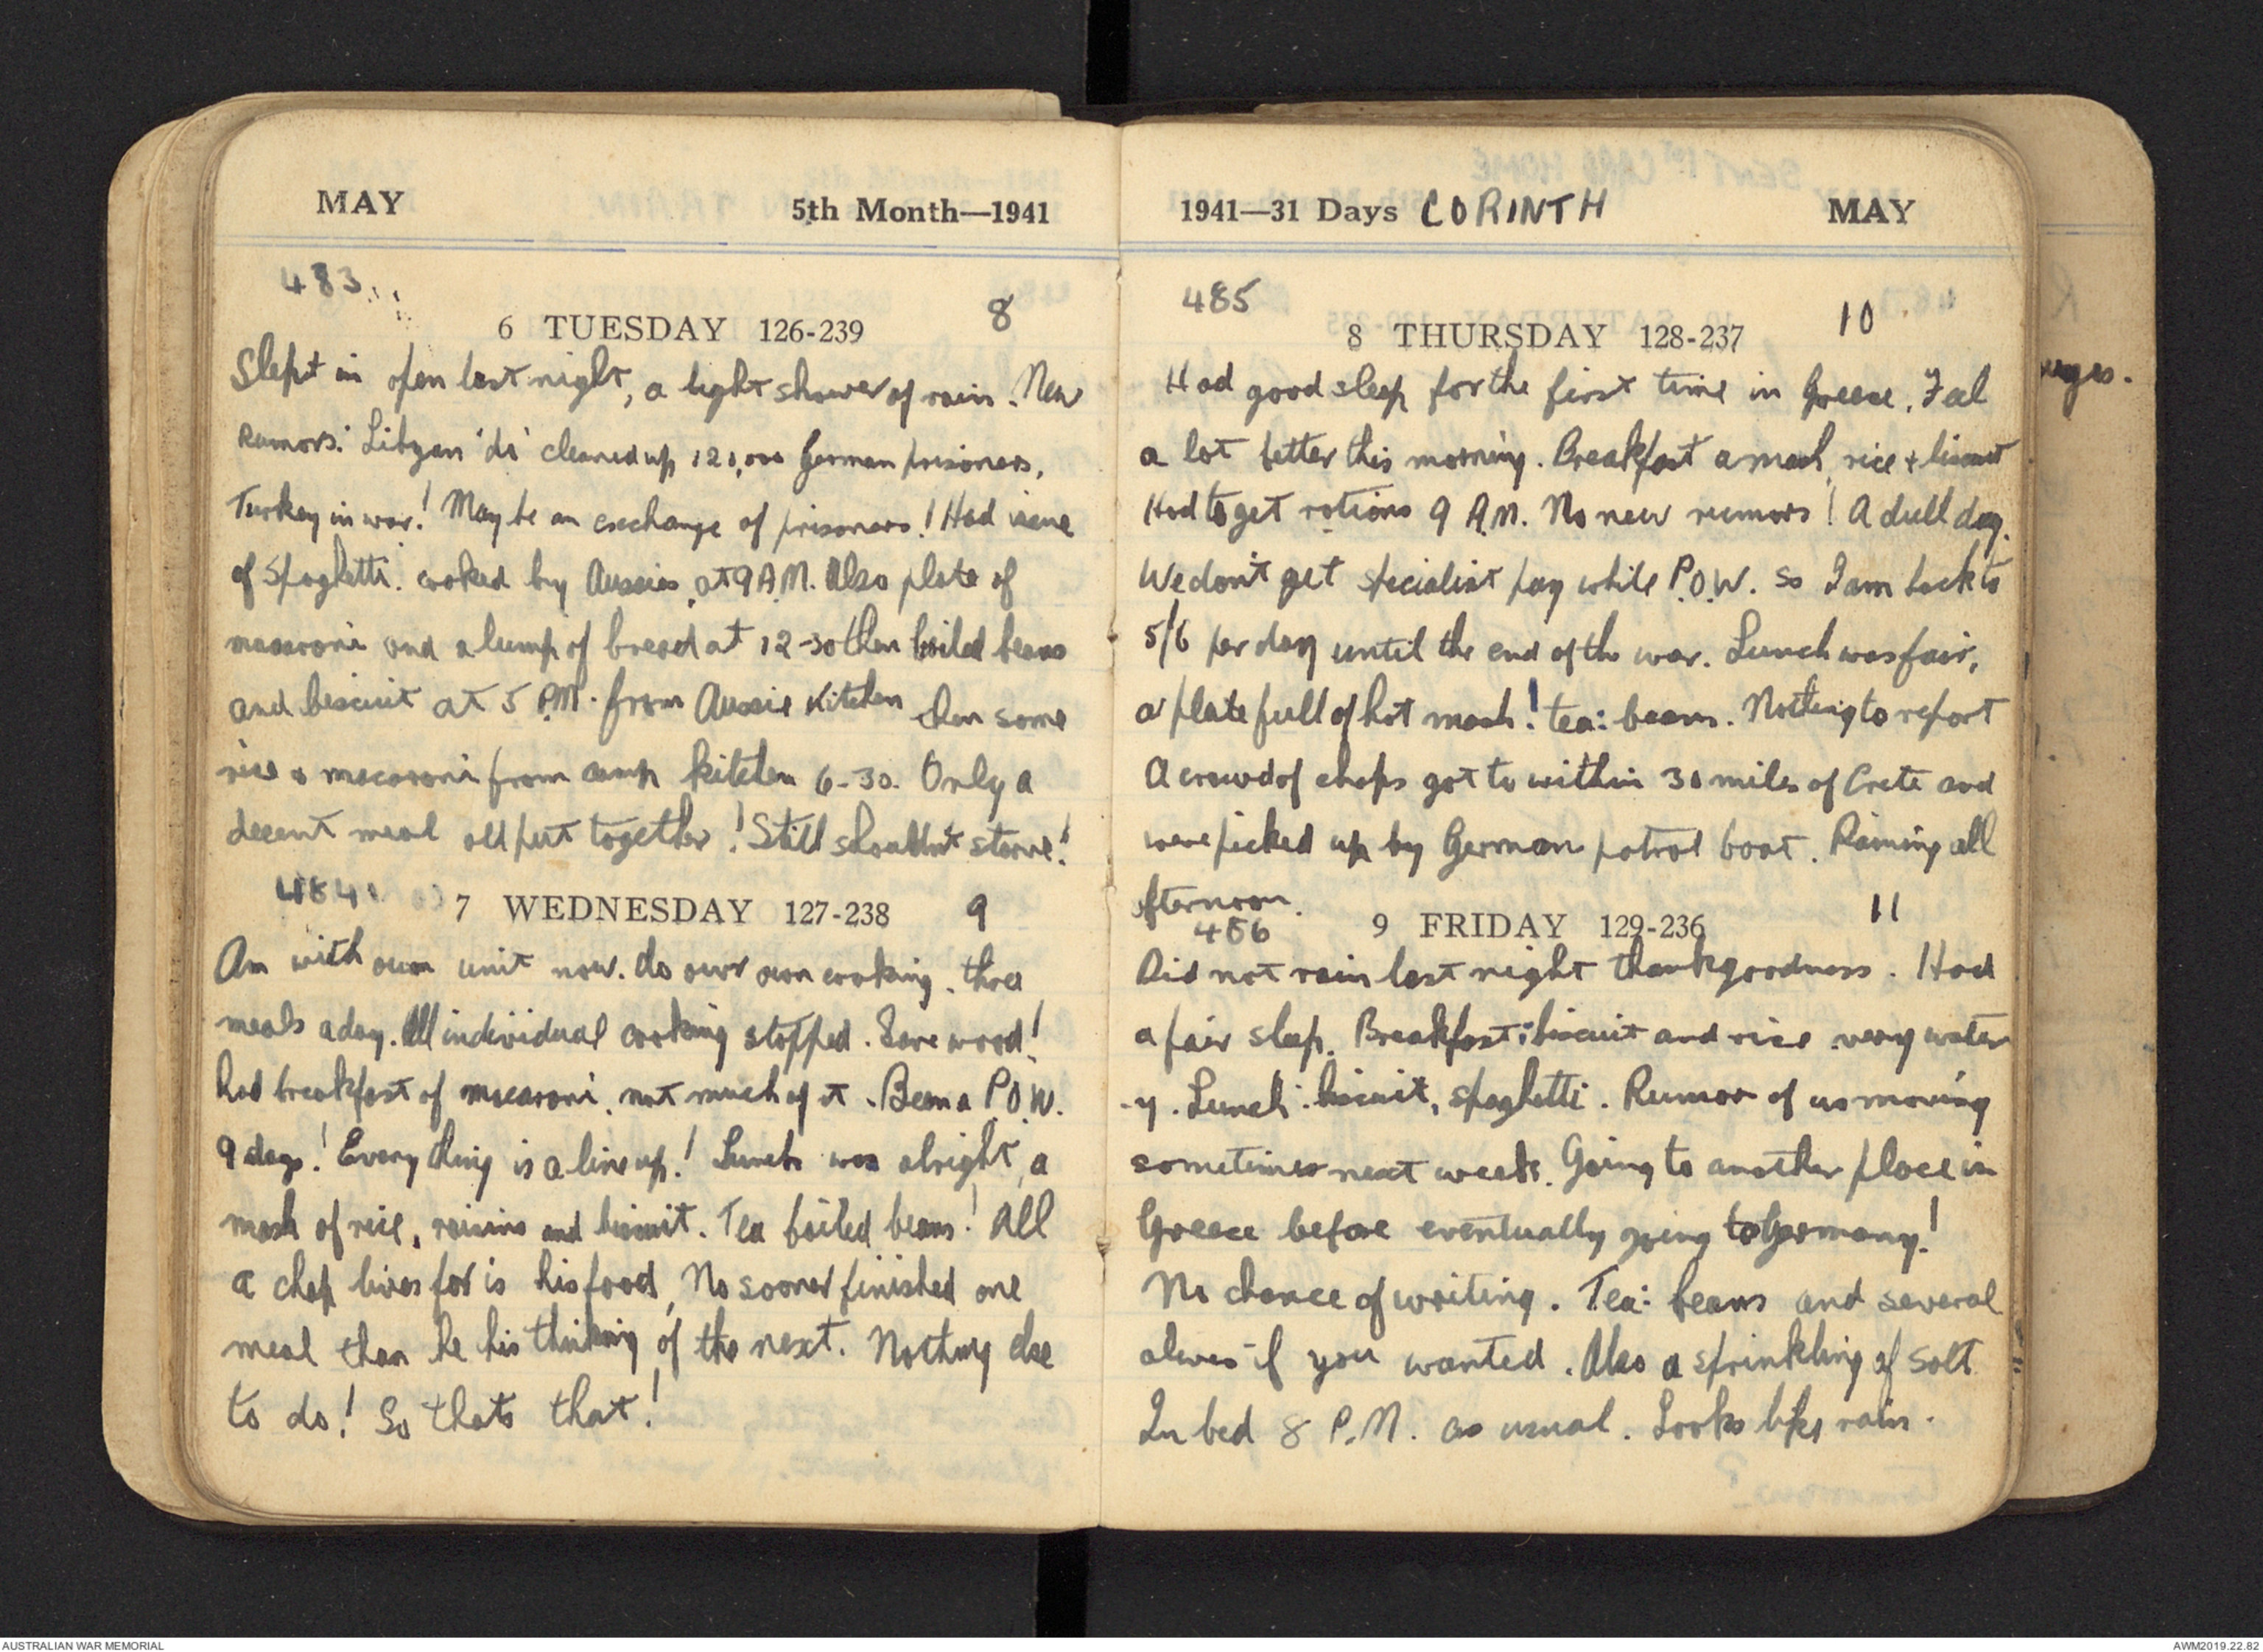 MAY 5th Month—1941
483
6 TUESDAY 126-239 8
Slept in open last night, a light shower of rain. New
Rumors: Libyan 'do' cleaned up 120,000 German prisoners,
Turkey in war! May be an exchange of prisoners! Had issue
of Spaghetti. cooked by Aussies, at 9 A.M. Also plate of
macaroni and a lump of bread at 12-30 then boiled beans
and biscuit at 5 P.M. from Aussie Kitchen then some
rice & macaroni from camp kitchen 6-30. Only a
decent meal all put together! Still shouldn't starve!
484
7 WEDNESDAY 127-238 9
Am with own unit now. do our own cooking. three
meals a day. All individual cooking stopped. Save wood!
had breakfast of macaroni, not much of it. Been a P.O.W.
9 days! Every thing is a line up! Lunch was alright, a
mash of rice, raisins and biscuit. Tea boiled beans! All
a chap lives for is his food, No sooner finished one
meal than he his thinking of the next. Nothing else
to do! So thats that!
1941—31 Days CORINTH MAY
485
8 THURSDAY 128-237 10
Had good sleep for the first time in Greece. Feel
a lot better this morning. Breakfast a mash, rice + biscuit
Had to get rations 9 A.M. No new rumors! A dull day.
We don't get specialist pay while P.O.W. so I am back to
5/6 per day until the end of the war. Lunch was fair,
a plate full of hot mash! tea: beans. Nothing to report
A crowd of chaps got to within 30 miles of Crete and
were picked up by German patrol boat. Raining all
afternoon.
486
9 FRIDAY 129-236 11
Did not rain last night thank goodness. Had
a fair sleep. Breakfast: biscuit and rice very water
-y. Lunch: biscuit, spaghetti. Rumor of us moving
sometimes next week. Going to another place in
Greece before eventually going to Germany!
No chance of writing. Tea: beans and several
olives if you wanted. Also a sprinkling of salt
In bed 8 P.M. as usual. Looks like rain.
AUSTRALIAN WAR MEMORIAL
AWM2019.22.82